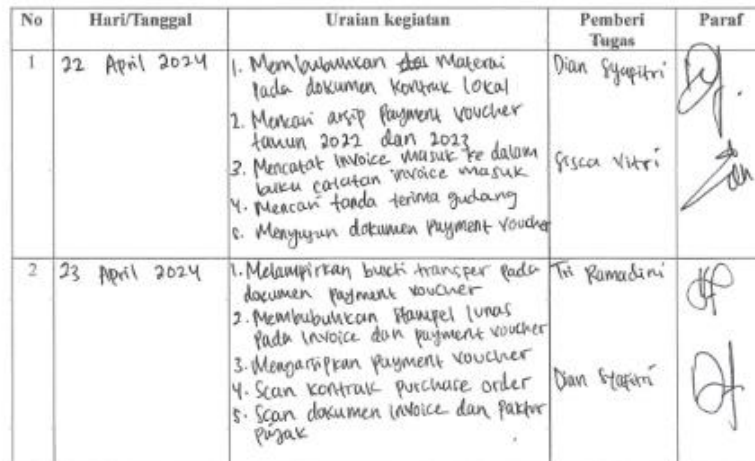 No Hari/Tanggal Uraian kegiatan Pemberi Tugas Paraf
1 22 April 2024
1. Membubuhkan materai
pada dokumen kontrak lokal
2. Mencari arsip Payment voucher
tahun 2022 dan 2023
3. Mencatat Invoice masuk ke dalam
buku catatan invoice masuk
4. Mencari tanda terima gudang
5. Menyusun dokumen Payment Voucher
Dian Syapitri
Sisca Vitri
2 23 April 2024
1. Melampirkan bukti transfer pada
documen payment voucher
2. Membubuhkan stampel lunas
pada invoice dan payment voucher
3. Mengarsipkan Payment voucher
4. Scan kontrak purchase order
5. Scan dokumen invoice dan Faktur
Pajak
Tri Ramadini
Dian Syapitri